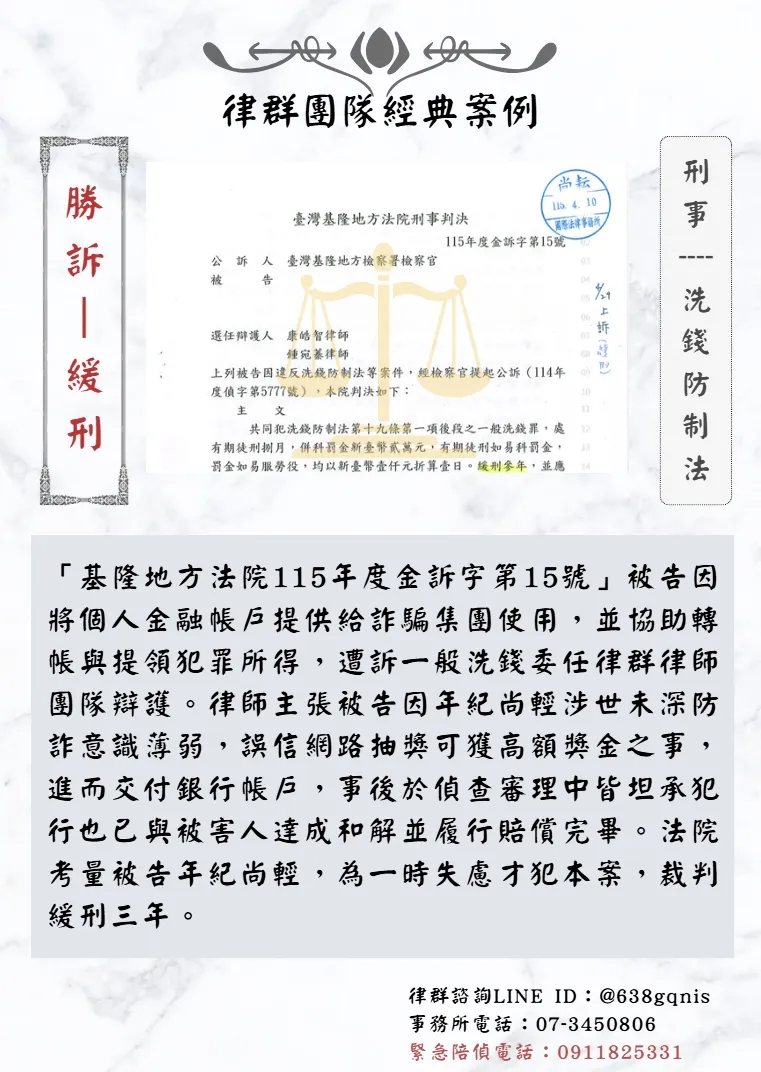 律群團隊經典案例
勝訴—緩刑
刑事----洗錢防制法
尚耘
115. 4. 10
國際法律事務所
臺灣基隆地方法院刑事判決
115年度金訴字第15號
公訴人 臺灣基隆地方檢察署檢察官
被告
選任辯護人 康皓智律師
鍾宛蓁律師
上列被告因違反洗錢防制法等案件,經檢察官提起公訴(114年
度偵字第5777號),本院判決如下:
主文
共同犯洗錢防制法第十九條第一項後段之一般洗錢罪,處
有期徒刑捌月,併科罰金新臺幣貳萬元,有期徒刑如易科罰金,
罰金如易服勞役,均以新臺幣壹仟元折算壹日。緩刑參年,並應
02
03
04
05
06
07
08
09
10
11
12
13
14
上訴
「基隆地方法院115年度金訴字第15號」被告因
將個人金融帳戶提供給詐騙集團使用,並協助轉
帳與提領犯罪所得,遭訴一般洗錢委任律群律師
團隊辯護。律師主張被告因年紀尚輕涉世未深防
詐意識薄弱,誤信網路抽獎可獲高額獎金之事,
進而交付銀行帳戶,事後於偵查審理中皆坦承犯
行也已與被害人達成和解並履行賠償完畢。法院
考量被告年紀尚輕,為一時失慮才犯本案,裁判
緩刑三年。
律群諮詢LINE ID:@638gqnis
事務所電話:07-3450806
緊急陪偵電話:0911825331